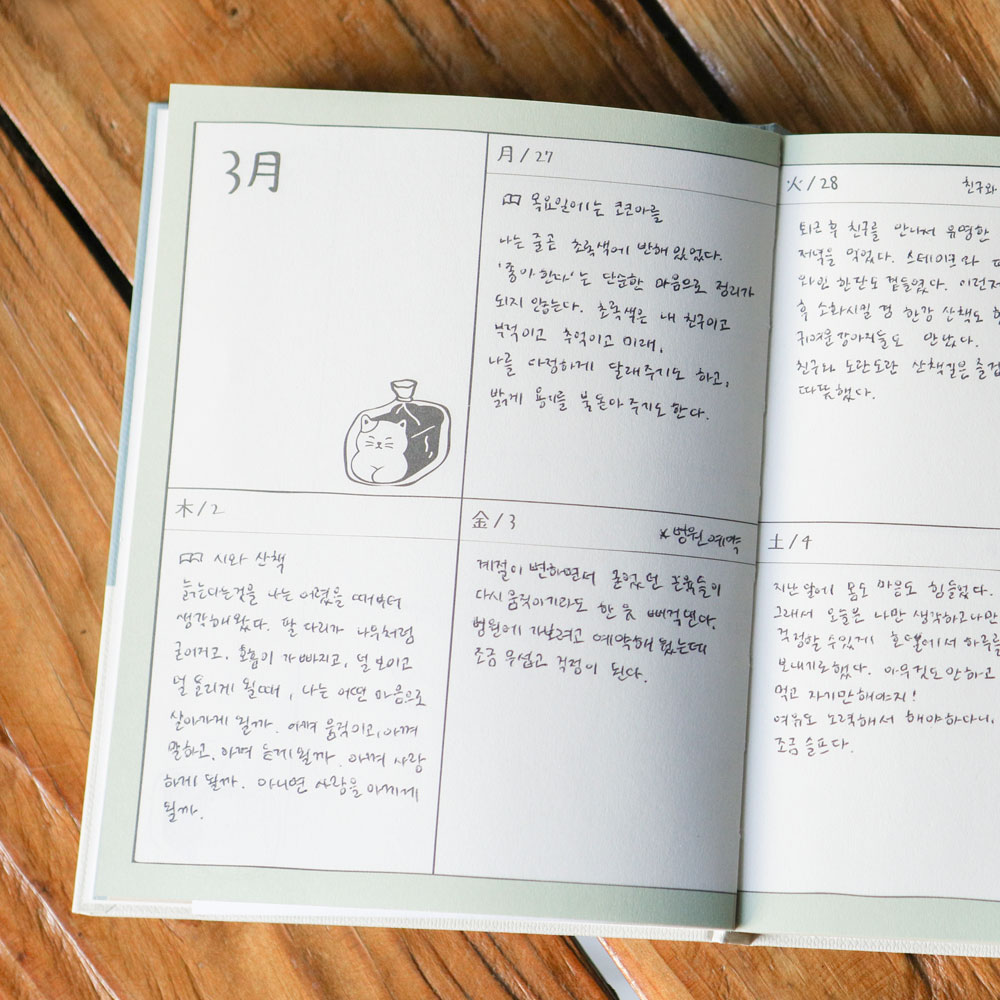 3月
月/27
목요일에는 코코아를
나는 줄곧 초록색에 반해 있었다.
'좋아한다'는 단순한 마음으로 정리가
되지 않는다. 초록색은 내 친구이고
부적이고 추억이고 미래,
나를 다정하게 달래주지도 하고,
밝게 용기를 북돋아 주지도 한다.
火/28
친구와
퇴근 후 친구를 만나서 유명한
저녁을 먹었다. 스테이크와 파
와인 한잔도 곁들였다. 이런저
후 소화시킬 겸 한강 산책도 하
귀여운 강아지들도 만났다.
친구와 도란도란 산책길은 즐겁
따뜻했다.
木/2
시와 산책
늙는다는것을 나는 어렸을 때부터
생각해왔다. 팔 다리가 나무처럼
굳어지고, 호흡이 가빠지고, 덜 보이고
덜 들리게 될때, 나는 어떤 마음으로
살아가게 될까. 아껴 움직이고, 아껴
말하고, 아껴 듣게 될까. 아껴 사랑
하게 될까. 아니면 사랑을 아끼게
될까.
金/3
*병원 예약
계절이 변하면서 굳었던 근육들이
다시 움직이기라도 한 듯 삐걱댄다.
병원에 가보려고 예약해 뒀는데
조금 무섭고 걱정이 된다.
土/4
지난 달에 몸도 마음도 힘들었다.
그래서 오늘은 나만 생각하고 나만
걱정할 수 있게 혼앞에서 하루를
보내기로 했다. 아무것도 안하고
먹고 자기만 해야지!
여유도 노력해서 해야하다니,
조금 슬프다.